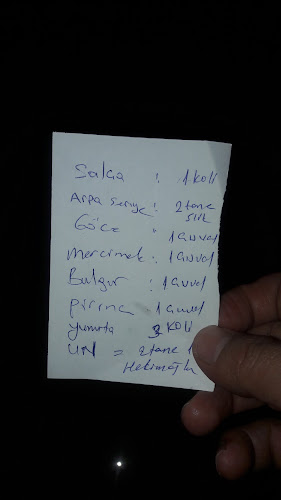 Salça : 1 koli
Arpa Seriye : 2 tane
Silk
Göce " 1 Guvvet
Mercimek : 1 Guvvel
Bulgur : 1 Guvvel
pirinç 1 Guvvet
yumurta 3 Koli
UN = 2 tane
Hekimoğlu